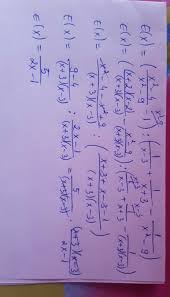 E(x) = (x²/x²-9 : (1/x-3 + 1/x+3 - 1/x²-9)
E(x) = ((x+2)(x-2)/(x+3)(x-3) - x²-9/x²-9) : (1/x-3 + 1/x+3 - 1/(x-3)(x+3))
E(x) = x²-4-x²-9/(x+3)(x-3) : (x+3+x-3-1/(x+3)(x-3))
E(x) = 9-4/(x+3)(x-3) : 2x-1/(x+3)(x-3) = 5/(x+3)(x-3) · (x+3)(x-3)/2x-1
E(x) = 5/2x-1